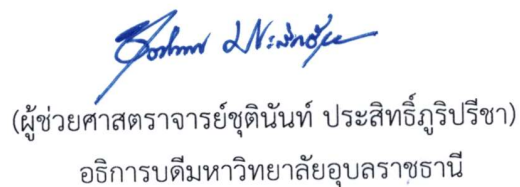 (ผู้ช่วยศาสตราจารย์ชุตินันท์ ประสิทธิ์ภูริปรีชา)
อธิการบดีมหาวิทยาลัยอุบลราชธานี